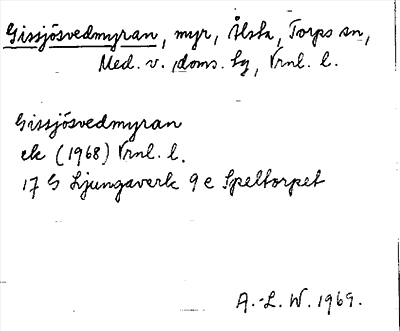 Gissjösvedmyran, myr, Ålsta, Torps sn,
Med. v. doms. hg, Vrnl. l.
Gissjösvedmyran
ek (1968) Vrnl. l.
17 G Ljungaverk 9 e Speltorpet
A.-L. W. 1969.